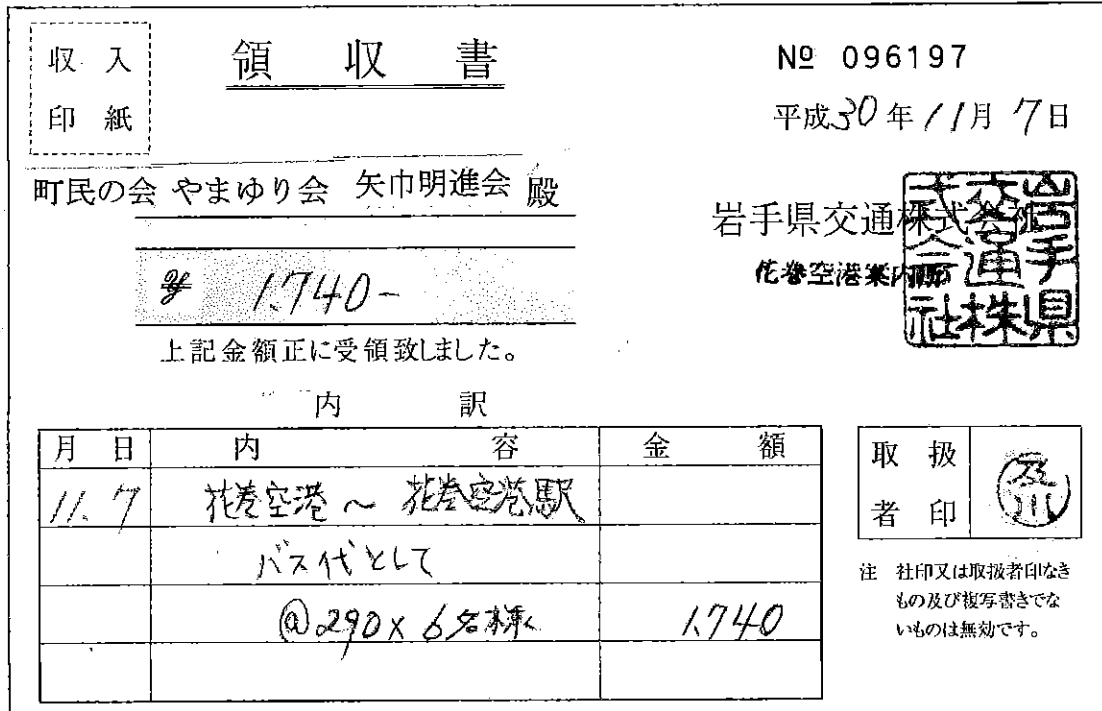 収入
印紙
領収書
№ 096197
平成30年11月7日
町民の会 やまゆり会 矢巾明進会 殿
岩手県交通株式会社
花巻空港案内所
岩手県交通株式会社
¥ 1.740-
上記金額正に受領致しました。
内訳
月日 内容 金額
11.7 花巻空港~花巻空港駅
バス代として
@290×6名様 1.740
取扱
者印
及川
注 社印又は取扱者印なき
もの及び複写書きでな
いものは無効です。